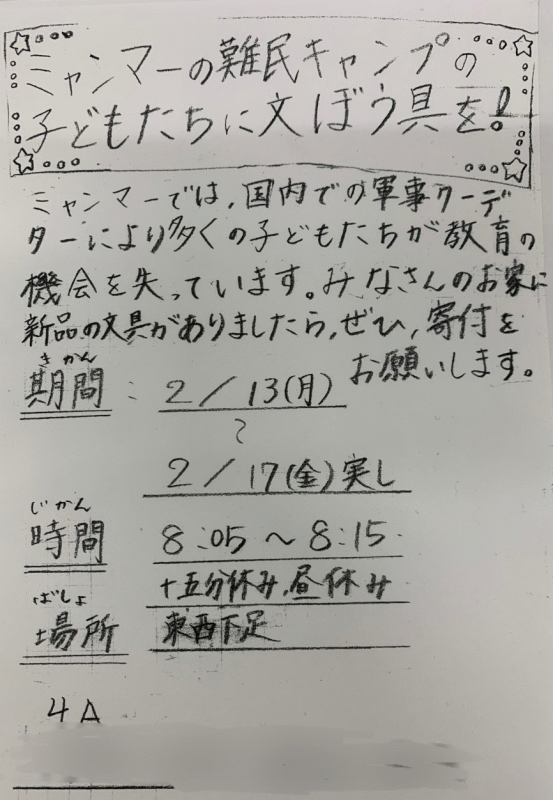 ミャンマーの難民キャンプの
子どもたちに文ぼう具を!
ミャンマーでは,国内での軍事クーデ
ターにより多くの子どもたちが教育の
機会を失っています。みなさんのお家に
新品の文具がありましたら,ぜひ,寄付を
お願いします。
きかん
期間: 2/13(月)
〜
2/17(金)実し
じかん
時間 8:05〜8:15
十五分休み,昼休み
ばしょ
場所 東西下足
4A